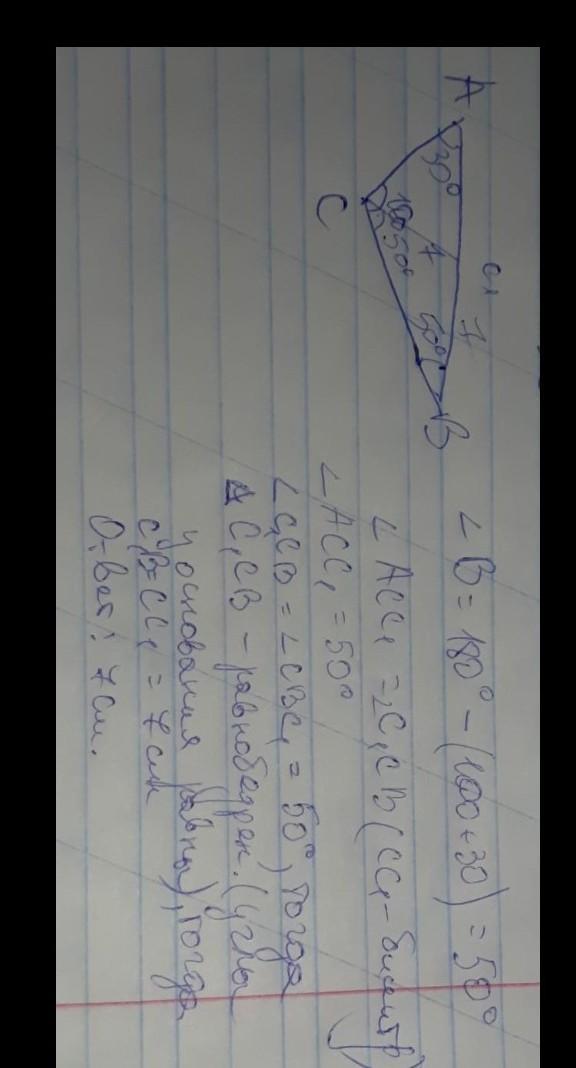 A
30°
C
100
50°
7
C₁
7
50°
B
∠B = 180° - (100 + 30) = 50°
∠ACC₁ = ∠C₁CB (CC₁ - биссектр)
∠ACC₁ = 50°
∠C₁CB = ∠CBC₁ = 50°, тогда
△C₁CB - равнобедрен. (углы
у основания равны), тогда
C₁B = CC₁ = 7 см
Ответ: 7 см.